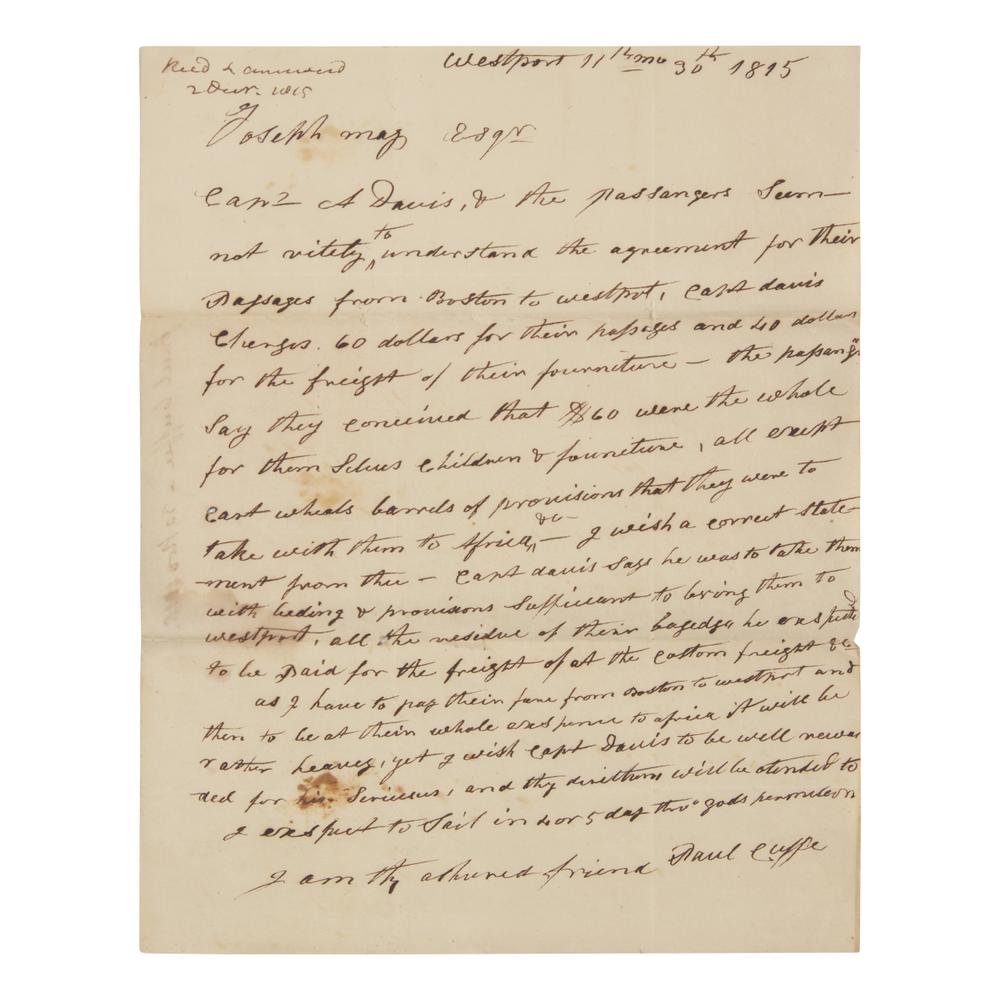 Recd & answered
2 Decr. 1815
Westport 11th mo 30th 1815
Joseph may Esqr
Capt A Davis, & the passangers Seem
not vitely to understand the agreement for their
Passages from Boston to westport, Capt davis
Cherges. 60 dollars for their passages and 40 dollars
for the freight of their fourniture – the passangrs
Say they conceived that $60 were the whole
for them Selves Children & founiture, all except
Capt wheals barrels of provisions that they were to
take with them to Africa, &c – I wish a correct state
ment from thee – Capt davis Says he was to take them
with beding & provisions Suffient to bring them to
westport, all the residue of their bagedge he exspected
to be paid for the freight of at the Costom freight &c
as I have to pay their fare from Boston to westport and
then to be at their whole exspence to africa it will be
rather heavey, yet I wish Capt Davis to be well rewar
ded for his Serviesus, and thy dirithum will be atended to
I exspect to Sail in 4 or 5 day thro gods permission
I am thy ashured friend Paul Cuffe